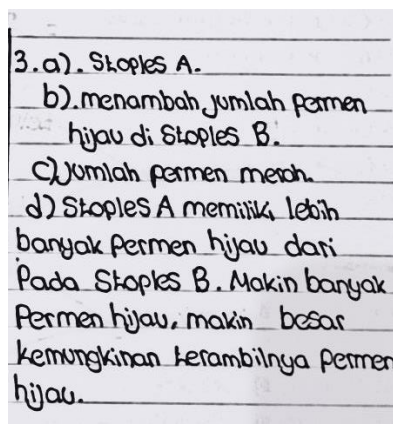 3.a). Stoples A.
b). menambah jumlah permen
hijau di Stoples B.
c) Jumlah permen merah.
d) Stoples A memiliki lebih
banyak Permen hijau dari
Pada Stoples B. Makin banyak
Permen hijau, makin besar
kemungkinan terambilnya permen
hijau.